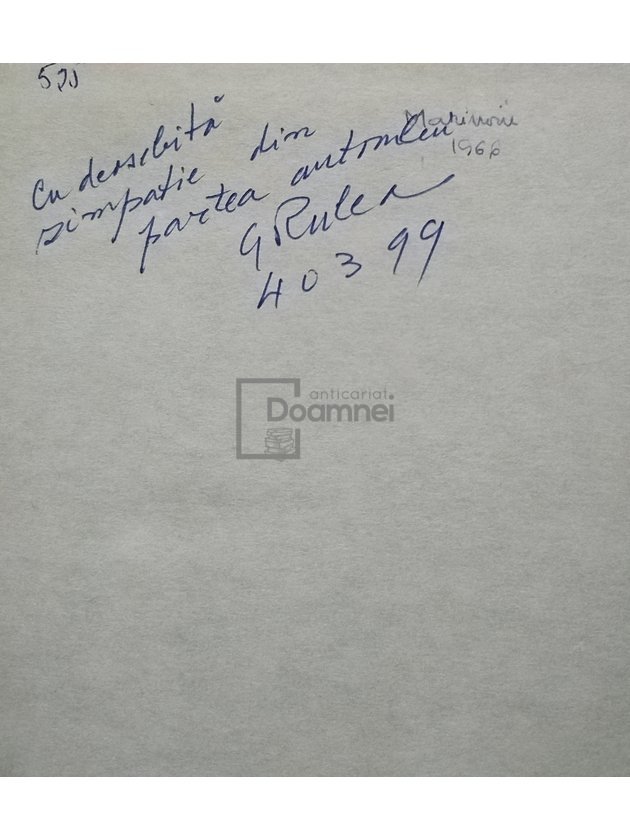 Cu deosebită
simpatie din
partea autorului
G Rulea
40399
1966
anticariat
Doamnei